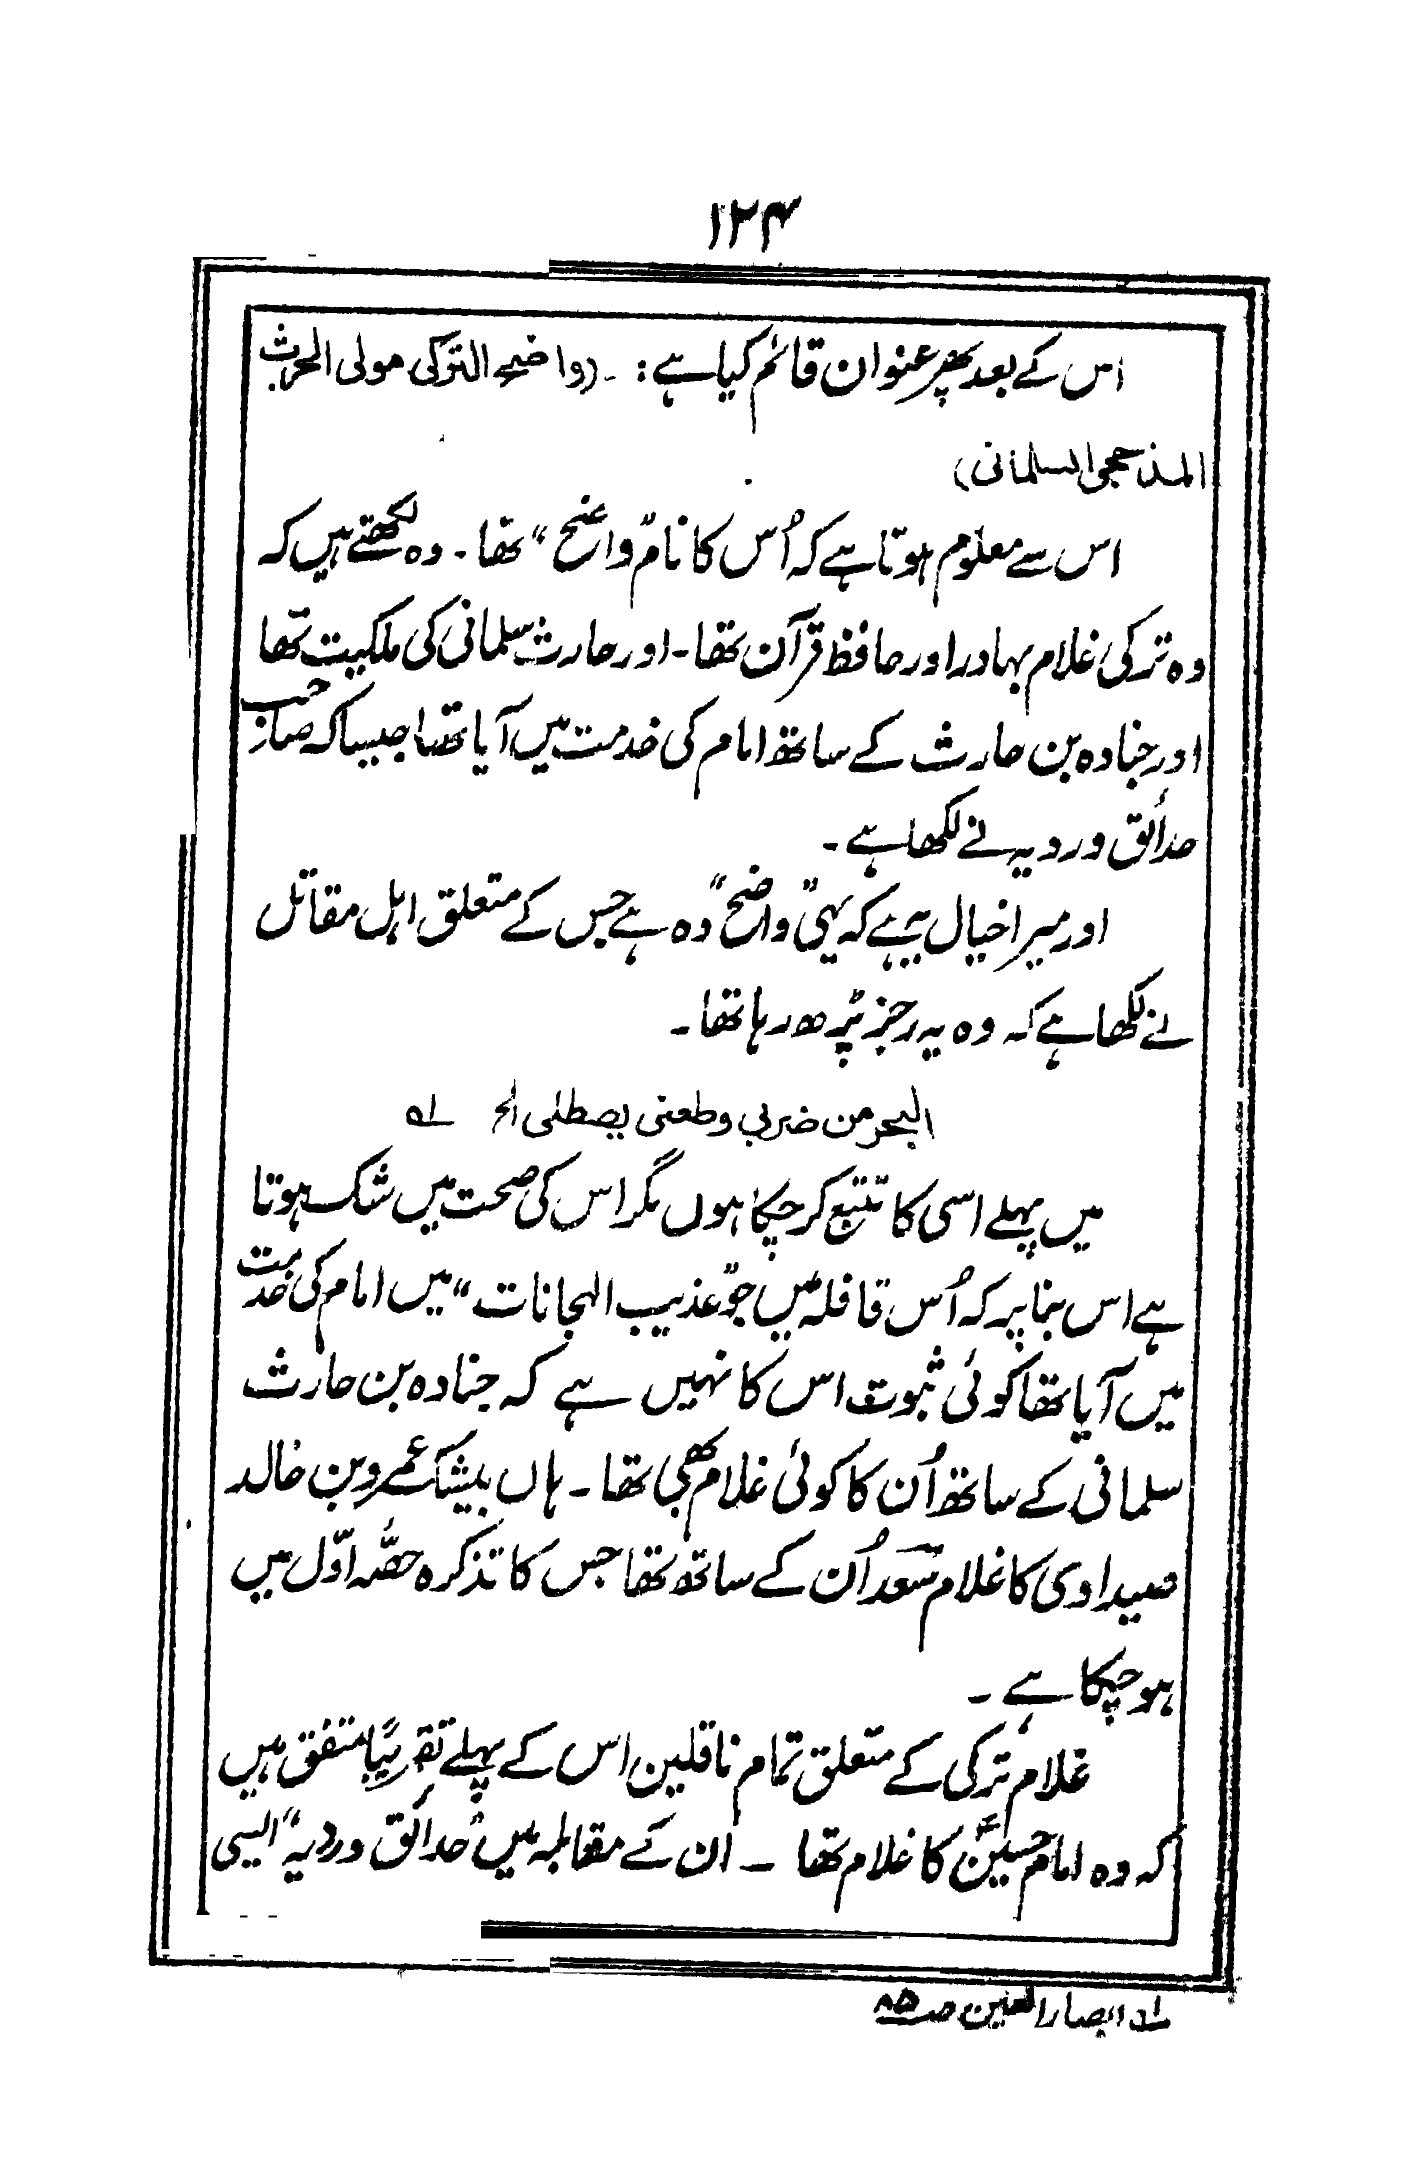 ۱۲۴
اس کے بعد پھر عنوان قائم کیا ہے :۔ (واضح الترکی مولی الحرث
المذحجی السلمانی)
اس سے معلوم ہوتا ہے کہ اُس کا نام ”واضح“ تھا۔ وہ لکھتے ہیں کہ
وہ ترکی غلام بہادر اور حافظ قرآن تھا۔ اور حارث سلمانی کی ملکیت تھا
اور جنادہ بن حارث کے ساتھ امام کی خدمت میں آیا تھا جیسا کہ صاحب
حدائق وردیہ نے لکھا ہے ۔
اور میرا خیال یہ ہے کہ یہی ”واضح“ وہ ہے جس کے متعلق اہل مقاتل
نے لکھا ہے کہ وہ یہ رجز پڑھ رہا تھا ۔
البحر من ضربی وطعنی یصطلی الخ لہ
میں پہلے اسی کا تتبع کر چکا ہوں مگر اس کی صحت میں شک ہوتا
ہے اس بنا پر کہ اُس قافلہ میں جو ”عذیب الہجانات“ میں امام کی خدمت
میں آیا تھا کوئی ثبوت اس کا نہیں ہے کہ جنادہ بن حارث
سلمانی کے ساتھ اُن کا کوئی غلام بھی تھا۔ ہاں بیشک عمرو بن خالد
صیداوی کا غلام سعد اُن کے ساتھ تھا جس کا تذکرہ حصّہ اوّل میں
ہو چکا ہے ۔
غلام ترکی کے متعلق تمام ناقلین اس کے پہلے تقریباً متفق ہیں
کہ وہ امام حسینؑ کا غلام تھا ۔ ان کے مقابلہ میں ”حدائق وردیہ“ ایسی
لہ ابصار العین صـ۸۵